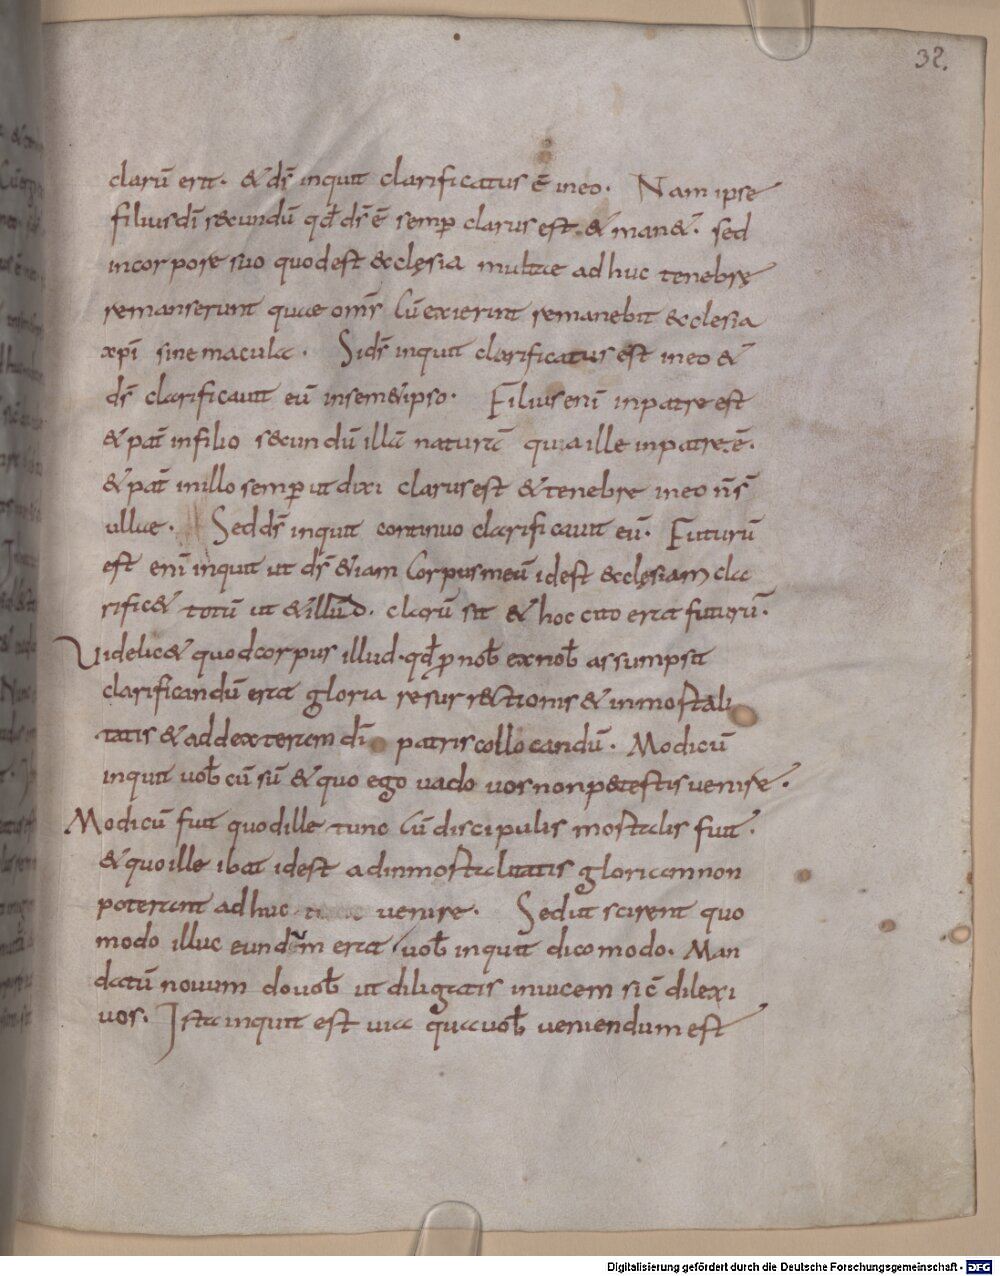 32.
clarū erit. & ds̄ inquit clarificatus ē in eo. Nam ipse
filius dī secundū qd̄ ds̄ ē semp clarus est & man&. sed
in corpore suo quod est ecclęsia multae ad huc tenebrę
remanserunt quae oms̄ Cū exierint remanebit ecclesia
xpī sine macula. Si ds̄ inquit clarificatus est in eo &
ds̄ clarificauit eū in semet ipso. Filius enī in patre est
& pat̄ in filio secundū illā naturā qua ille in patre ē.
& pat̄ in illo semp ut dixi clarus est & tenebre in eo ns̄
ullae. Sed ds̄ inquit continuo clarificauit eū. Futurū
est enī inquit ut ds̄ &iam Corpus meū id est ecclęsiam cla
rific& totū ut & illud. clarū sit & hoc cito erat futurū.
Videlic& quod corpus illud. qd̄ p nob̄ ex nob̄ assumpsit
clarificandū erat gloria resurrectionis & inmortali
tatis & ad dexteram dī patris collocandū. Modicū
inquit uob̄ cū sū & quo ego uado uos non potestis uenire.
Modicū fuit quod ille tunc Cū discipulis mortalis fuit.
& quo ille ibat id est ad inmortalitatis gloriam non
poterant ad huc uenire. Sed ut scirent quo
modo illuc eundum erat uob̄ inquit dico modo. Man
datū nouum do uob̄ ut diligatis inuicem sic̄ dilexi
uos. Ista inquit est uia qua uob̄ ueniendum est
Digitalisierung gefördert durch die Deutsche Forschungsgemeinschaft - DFG